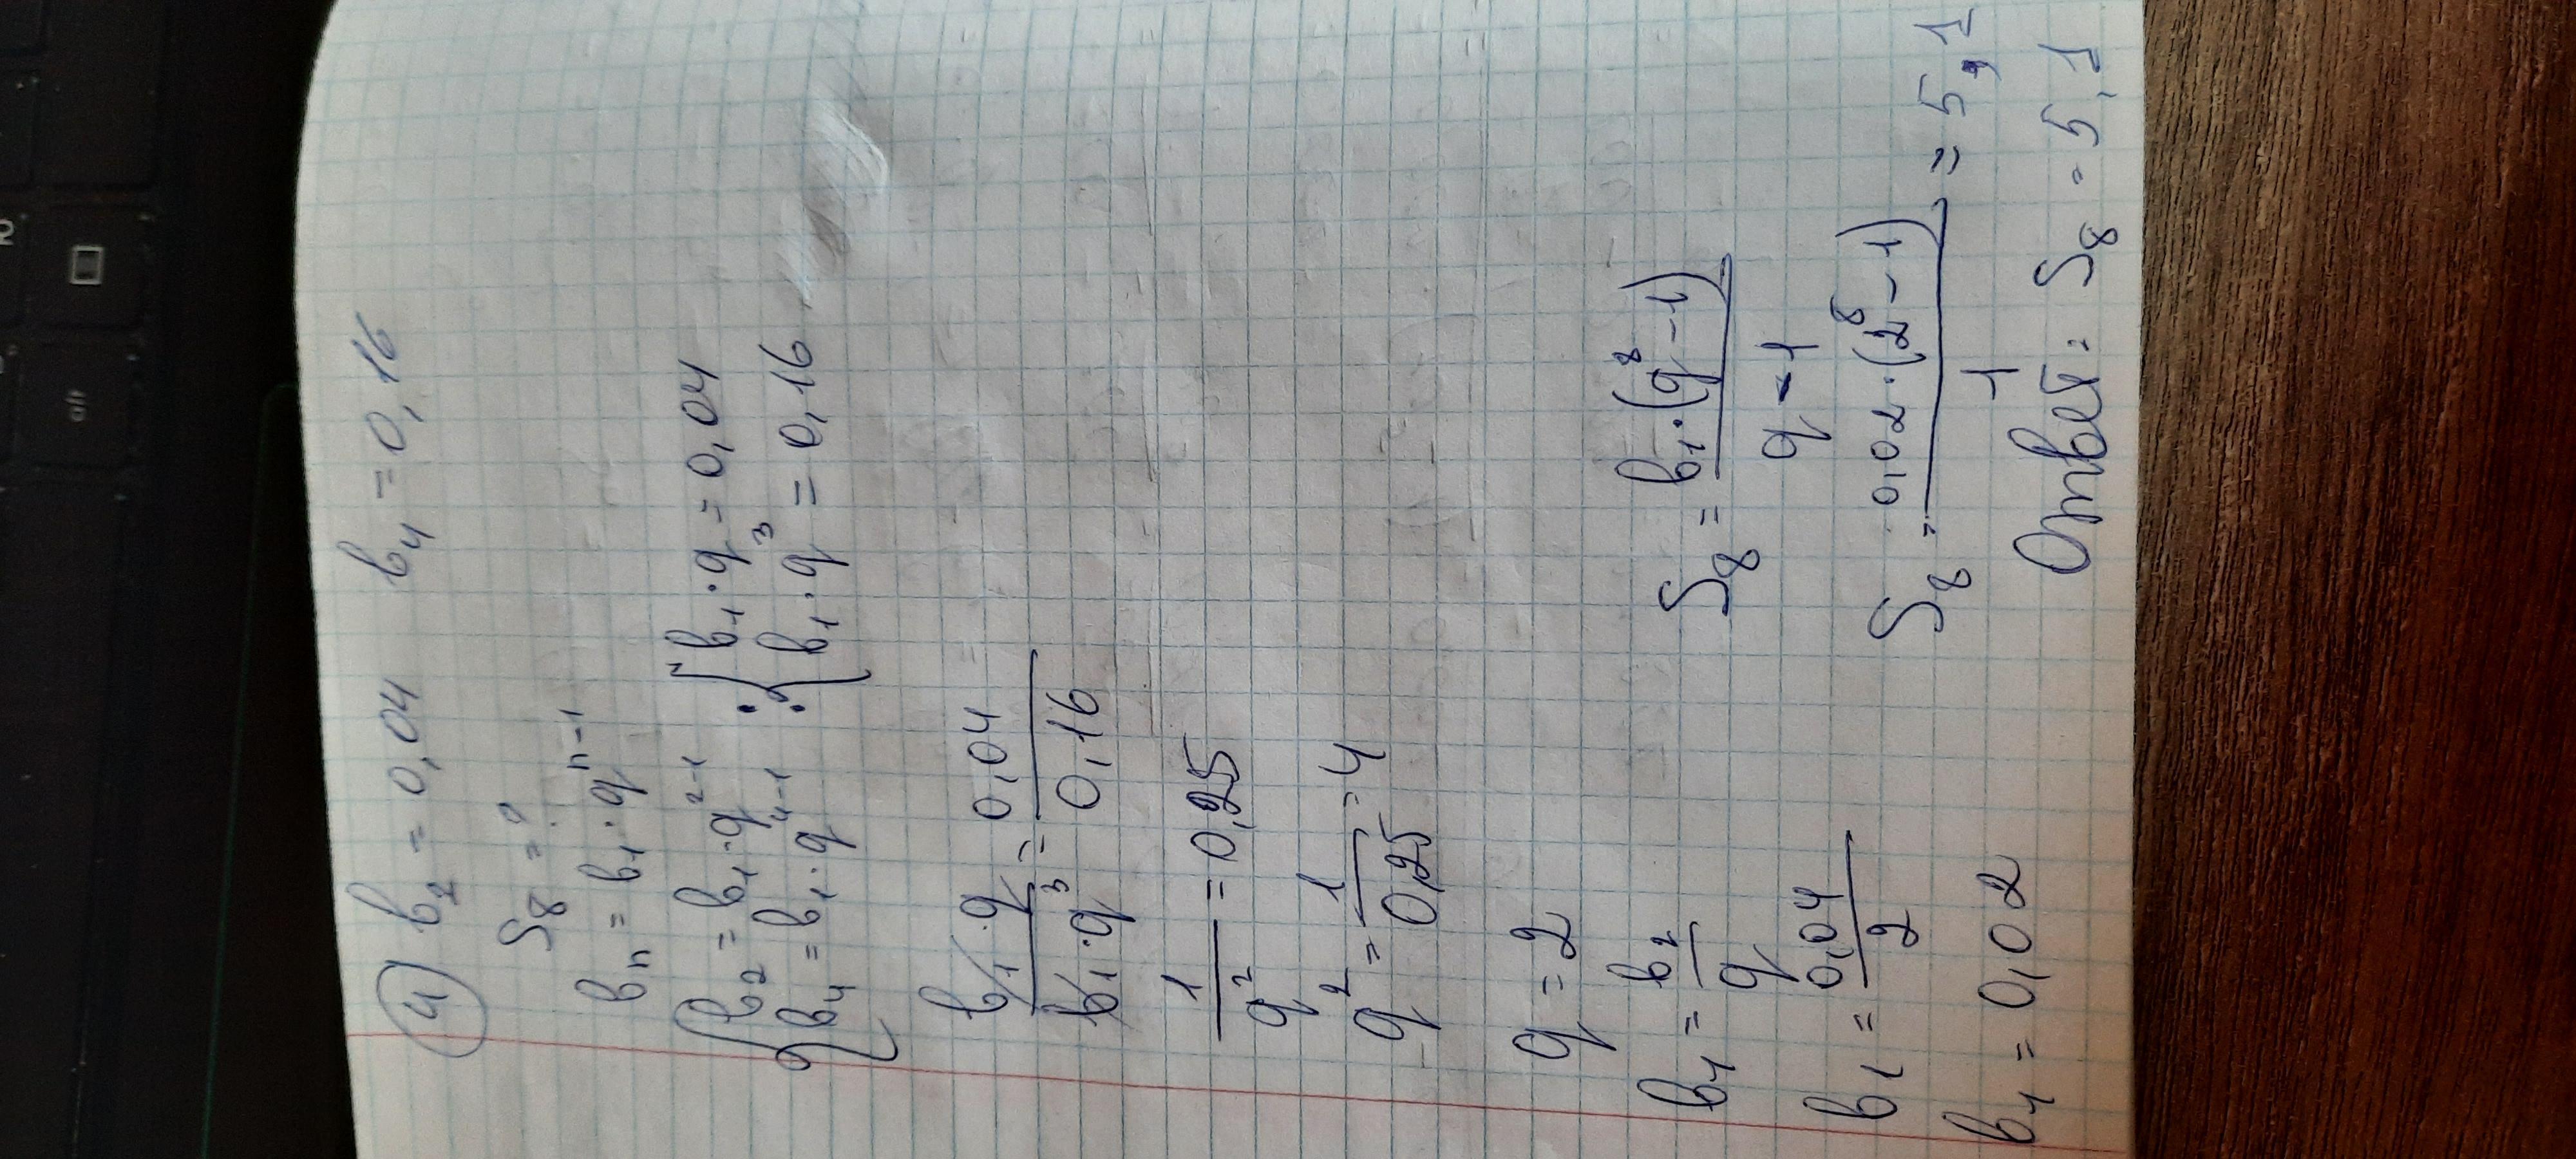 ④ b₂ = 0,04 b₄ = 0,16
S₈ = ?
bₙ = b₁ · qⁿ⁻¹
{ b₂ = b₁ · q²⁻¹ : { b₁ · q = 0,04
{ b₄ = b₁ · q⁴⁻¹ { b₁ · q³ = 0,16
b₁ · q / b₁ · q³ = 0,04 / 0,16
1 / q² = 0,25
q² = 1 / 0,25 = 4
q = 2
b₁ = b₂ / q
b₁ = 0,04 / 2
b₁ = 0,02
S₈ = b₁ · (q⁸ - 1) / q - 1
S₈ = 0,02 · (2⁸ - 1) / 1 = 5,1
Ответ: S₈ = 5,1